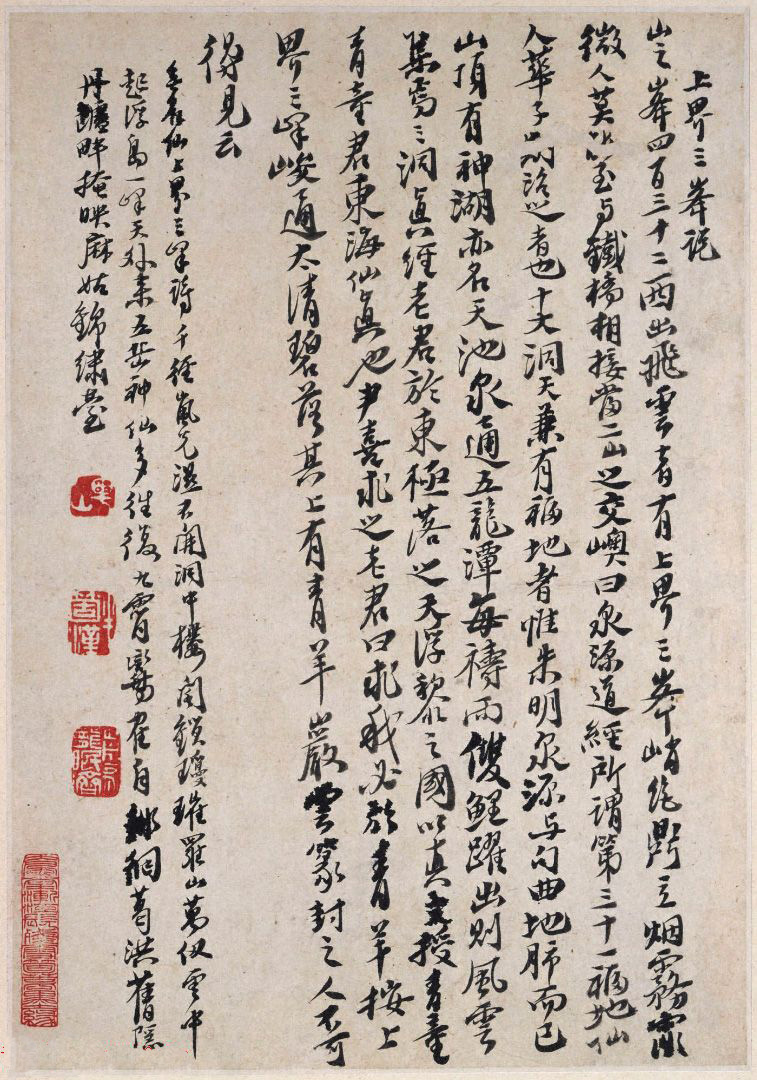 上界三峯説
山之峯四百三十二西出飛雲者有上界三峯峭絶鼎立烟霧霏
微人莫能至与鐵橋相接當二山之交嶼曰泉源道經所謂第三十一福地仙
人華子期治之者也十大洞天兼有福地者惟朱明泉源与句曲地肺而已
山頂有神湖亦名天池泉通五龍潭每禱雨雙鯉躍出則風雲
集焉三洞真經老君於東極落之天浮黎之國以真文授青童
青童君東海仙真也尹喜求之老君曰求我必於青羊按上
界三峰峻通太清碧落其上有青羊巖雲篆封之人不可
得見云
仙上界三峰詩千徑嵐光濕不開洞中樓閣鎖瓊瑰羅山萬仞雲中
起浮島一峰天外來五嶽神仙多往復九霄鸞雀自徘徊葛洪舊隱
丹罏畔掩映麻姑錦繡臺